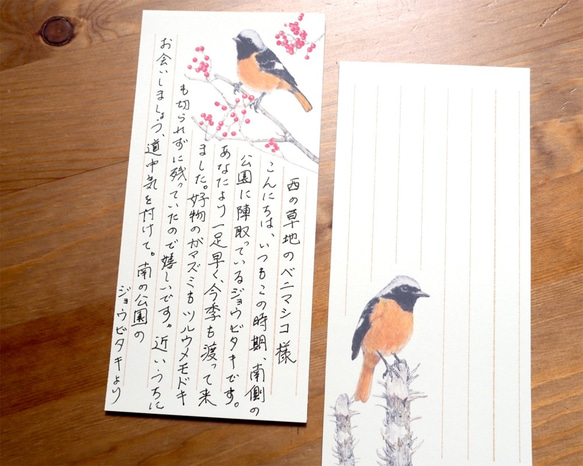 西の草地のベニマシコ様
こんにちは、いつもこの時期、南側の
公園に陣取っているジョウビタキです。
あなたより一足早く、今季も渡って来
ました。好物のガマズミもツルウメモドキ
も切られずに残っていたので嬉しいです。近いうちに
お会いしましょう、道中気を付けて。南の公園の
ジョウビタキより